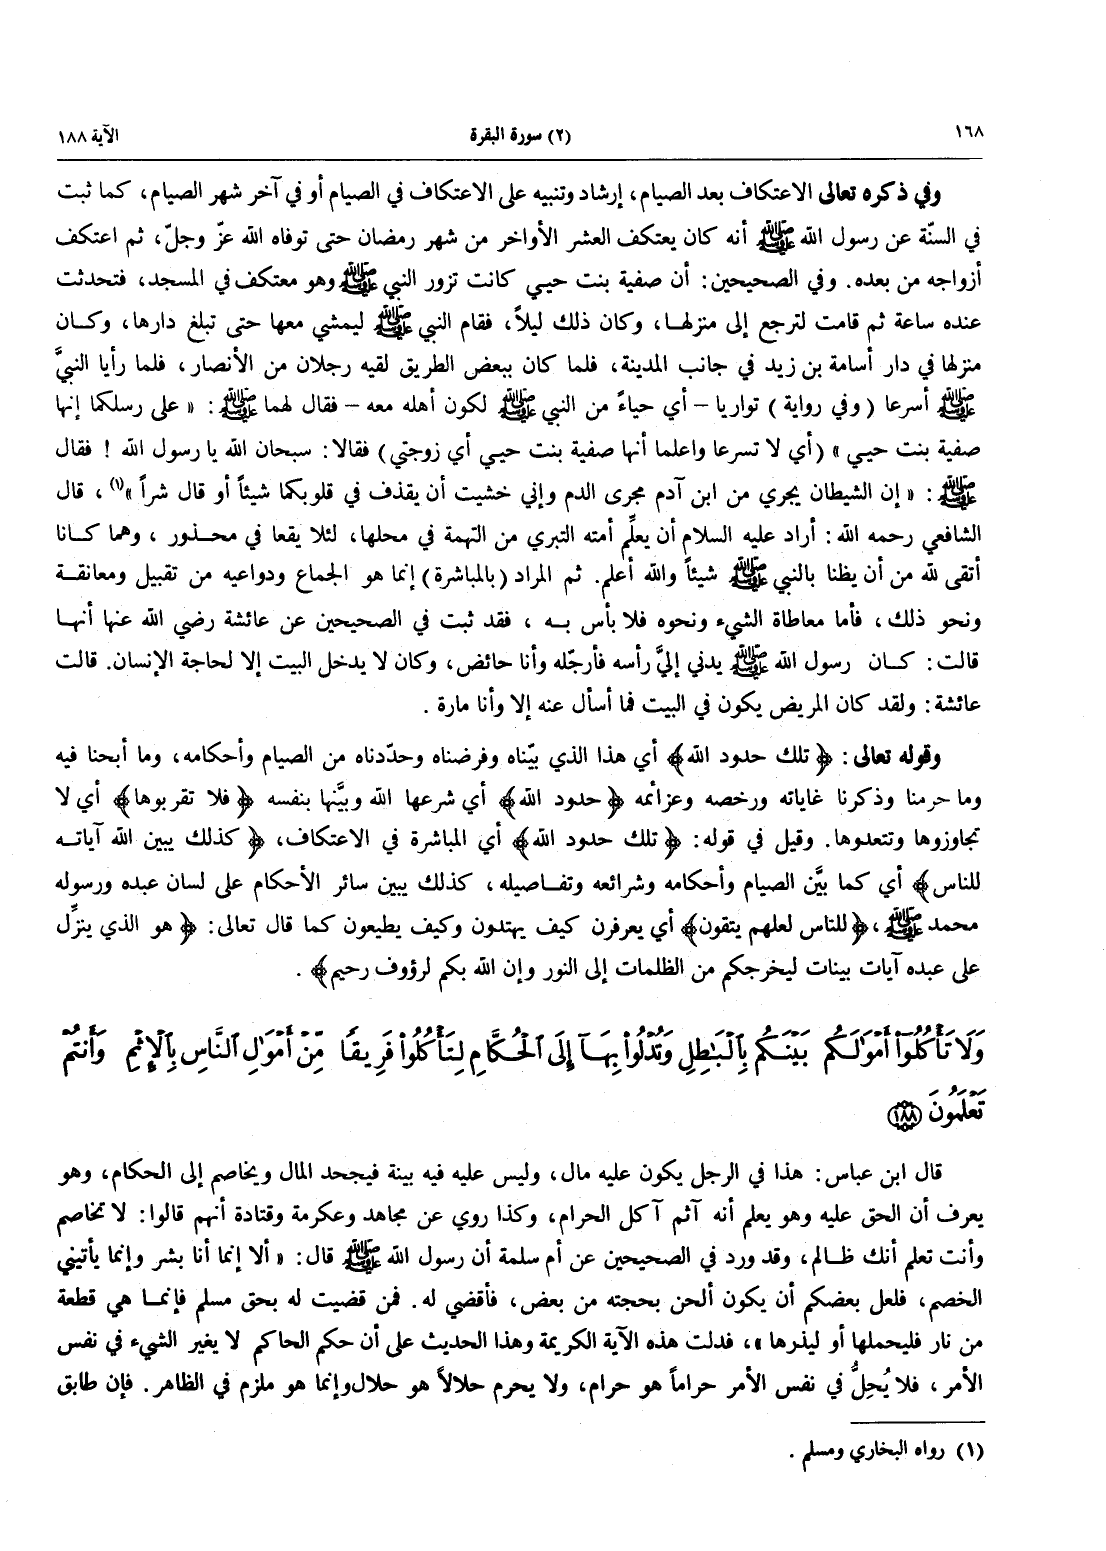 ١٦٨ (٢) سورة البقرة الآية ١٨٨
وفي ذكره تعالى الاعتكاف بعد الصيام، إرشاد وتنبيه على الاعتكاف في الصيام أو في آخر شهر الصيام، كما ثبت
في السنّة عن رسول الله ﷺ أنه كان يعتكف العشر الأواخر من شهر رمضان حتى توفاه الله عزّ وجلّ، ثم اعتكف
أزواجه من بعده. وفي الصحيحين: أن صفية بنت حيـي كانت تزور النبي ﷺ وهو معتكف في المسجد، فتحدثت
عنده ساعة ثم قامت لترجع إلى منزلهـا، وكان ذلك ليلاً، فقام النبي ﷺ ليمشي معها حتى تبلغ دارها، وكـان
منزلها في دار أسامة بن زيد في جانب المدينة، فلما كان ببعض الطريق لقيه رجلان من الأنصار، فلما رأيا النبيَّ
ﷺ أسرعا (وفي رواية) تواريا – أي حياءً من النبي ﷺ لكون أهله معه – فقال لهما ﷺ: «على رسلكما إنها
صفية بنت حيـي» (أي لا تسرعا واعلما أنها صفية بنت حيـي أي زوجتي) فقالا: سبحان الله يا رسول الله! فقال
ﷺ: «إن الشيطان يجري من ابن آدم مجرى الدم وإني خشيت أن يقذف في قلوبكما شيئاً أو قال شراً»(١)، قال
الشافعي رحمه الله: أراد عليه السلام أن يعلِّم أمته التبري من التهمة في محلها، لئلا يقعا في محـذور، وهما كـانا
أتقى لله من أن يظنا بالنبي ﷺ شيئاً والله أعلم. ثم المراد (بالمباشرة) إنما هو الجماع ودواعيه من تقبيل ومعانقـة
ونحو ذلك، فأما معاطاة الشيء ونحوه فلا بأس بـه، فقد ثبت في الصحيحين عن عائشة رضي الله عنها أنهـا
قالت: كـان رسول الله ﷺ يدني إليَّ رأسه فأرجّله وأنا حائض، وكان لا يدخل البيت إلا لحاجة الإنسان. قالت
عائشة: ولقد كان المريض يكون في البيت فما أسأل عنه إلا وأنا مارة.
وقوله تعالى: ﴿تلك حدود الله﴾ أي هذا الذي بيّناه وفرضناه وحدّدناه من الصيام وأحكامه، وما أبحنا فيه
وما حرمنا وذكرنا غاياته ورخصه وعزائمه ﴿حدود الله﴾ أي شرعها الله وبيَّنها بنفسه ﴿فلا تقربوها﴾ أي لا
تجاوزوها وتتعدوها. وقيل في قوله: ﴿تلك حدود الله﴾ أي المباشرة في الاعتكاف، ﴿كذلك يبين الله آياتـه
للناس﴾ أي كما بيَّن الصيام وأحكامه وشرائعه وتفـاصيله، كذلك يبين سائر الأحكام على لسان عبده ورسوله
محمد ﷺ، ﴿للناس لعلهم يتقون﴾ أي يعرفرن كيف يهتدون وكيف يطيعون كما قال تعالى: ﴿هو الذي ينزِّل
على عبده آيات بينات ليخرجكم من الظلمات إلى النور وإن الله بكم لرؤوف رحيم﴾.
وَلَا تَأْكُلُوٓا۟ أَمْوَٰلَكُم بَيْنَكُم بِٱلْبَٰطِلِ وَتُدْلُوا۟ بِهَآ إِلَى ٱلْحُكَّامِ لِتَأْكُلُوا۟ فَرِيقًا مِّنْ أَمْوَٰلِ ٱلنَّاسِ بِٱلْإِثْمِ وَأَنتُمْ
تَعْلَمُونَ ١٨٨
قال ابن عباس: هذا في الرجل يكون عليه مال، وليس عليه فيه بينة فيجحد المال ويخاصم إلى الحكام، وهو
يعرف أن الحق عليه وهو يعلم أنه آثم آكل الحرام، وكذا روي عن مجاهد وعكرمة وقتادة أنهم قالوا: لا تخاصم
وأنت تعلم أنك ظـالم، وقد ورد في الصحيحين عن أم سلمة أن رسول الله ﷺ قال: «ألا إنما أنا بشر وإنما يأتيني
الخصم، فلعل بعضكم أن يكون ألحن بحجته من بعض، فأقضي له. فمن قضيت له بحق مسلم فإنمـا هي قطعة
من نار فليحملها أو ليذرها»، فدلت هذه الآية الكريمة وهذا الحديث على أن حكم الحاكم لا يغير الشيء في نفس
الأمر، فلا يُحِلُّ في نفس الأمر حراماً هو حرام، ولا يحرم حلالاً هو حلال وإنما هو ملزم في الظاهر. فإن طابق
(١) رواه البخاري ومسلم.